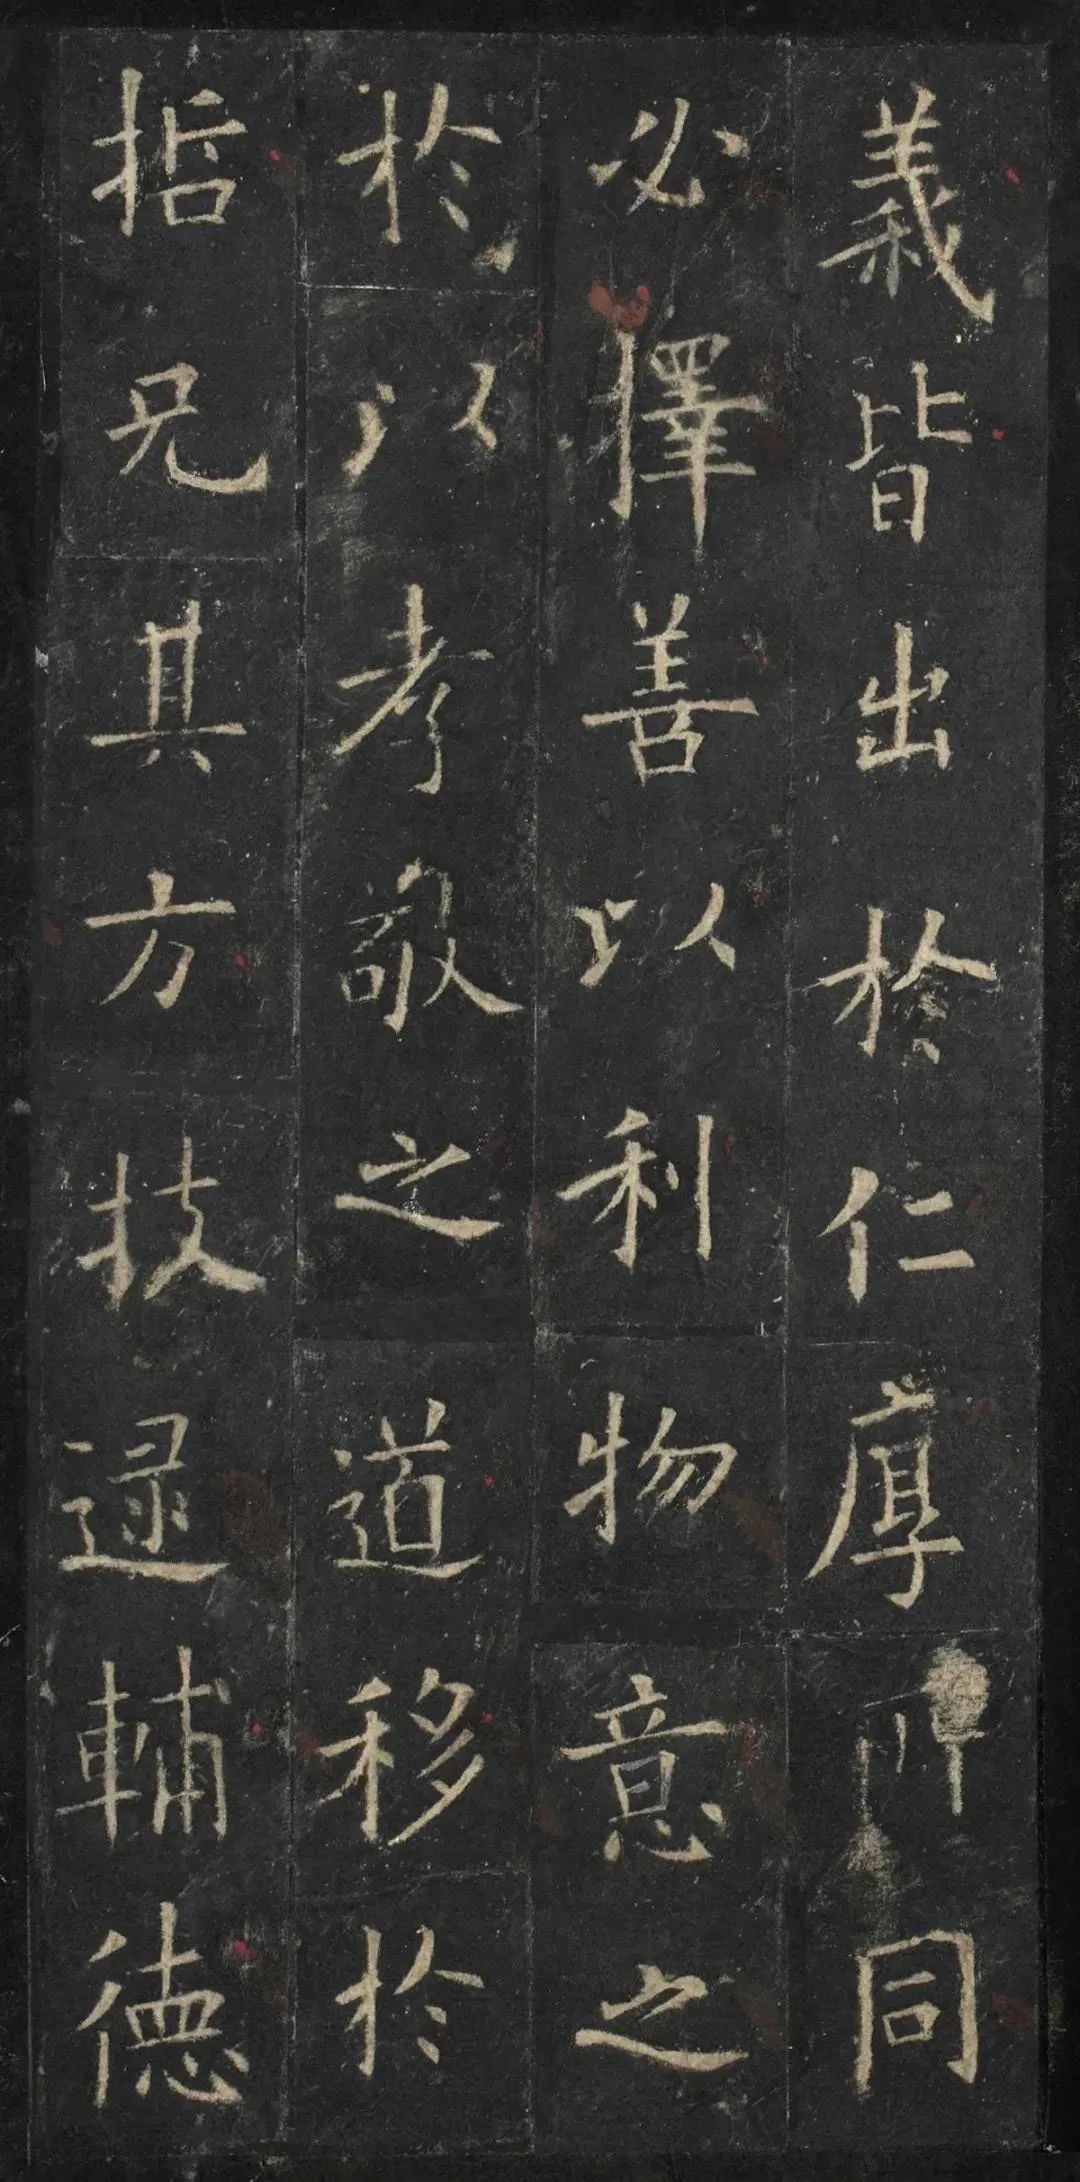 義皆出於仁厚同
必擇善以利物意之
於以孝敬之道移於
哲兄其方技逮輔德